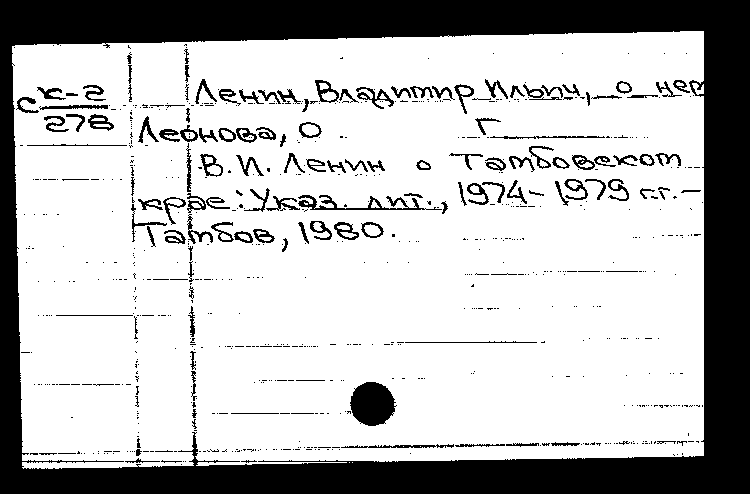 Ленин, Владимир Ильич, о нем
с к-2
278
Леонова, О Г
В.И. Ленин о Тамбовском
крае: Указ. лит., 1974-1979 г.г.-
Тамбов, 1980.